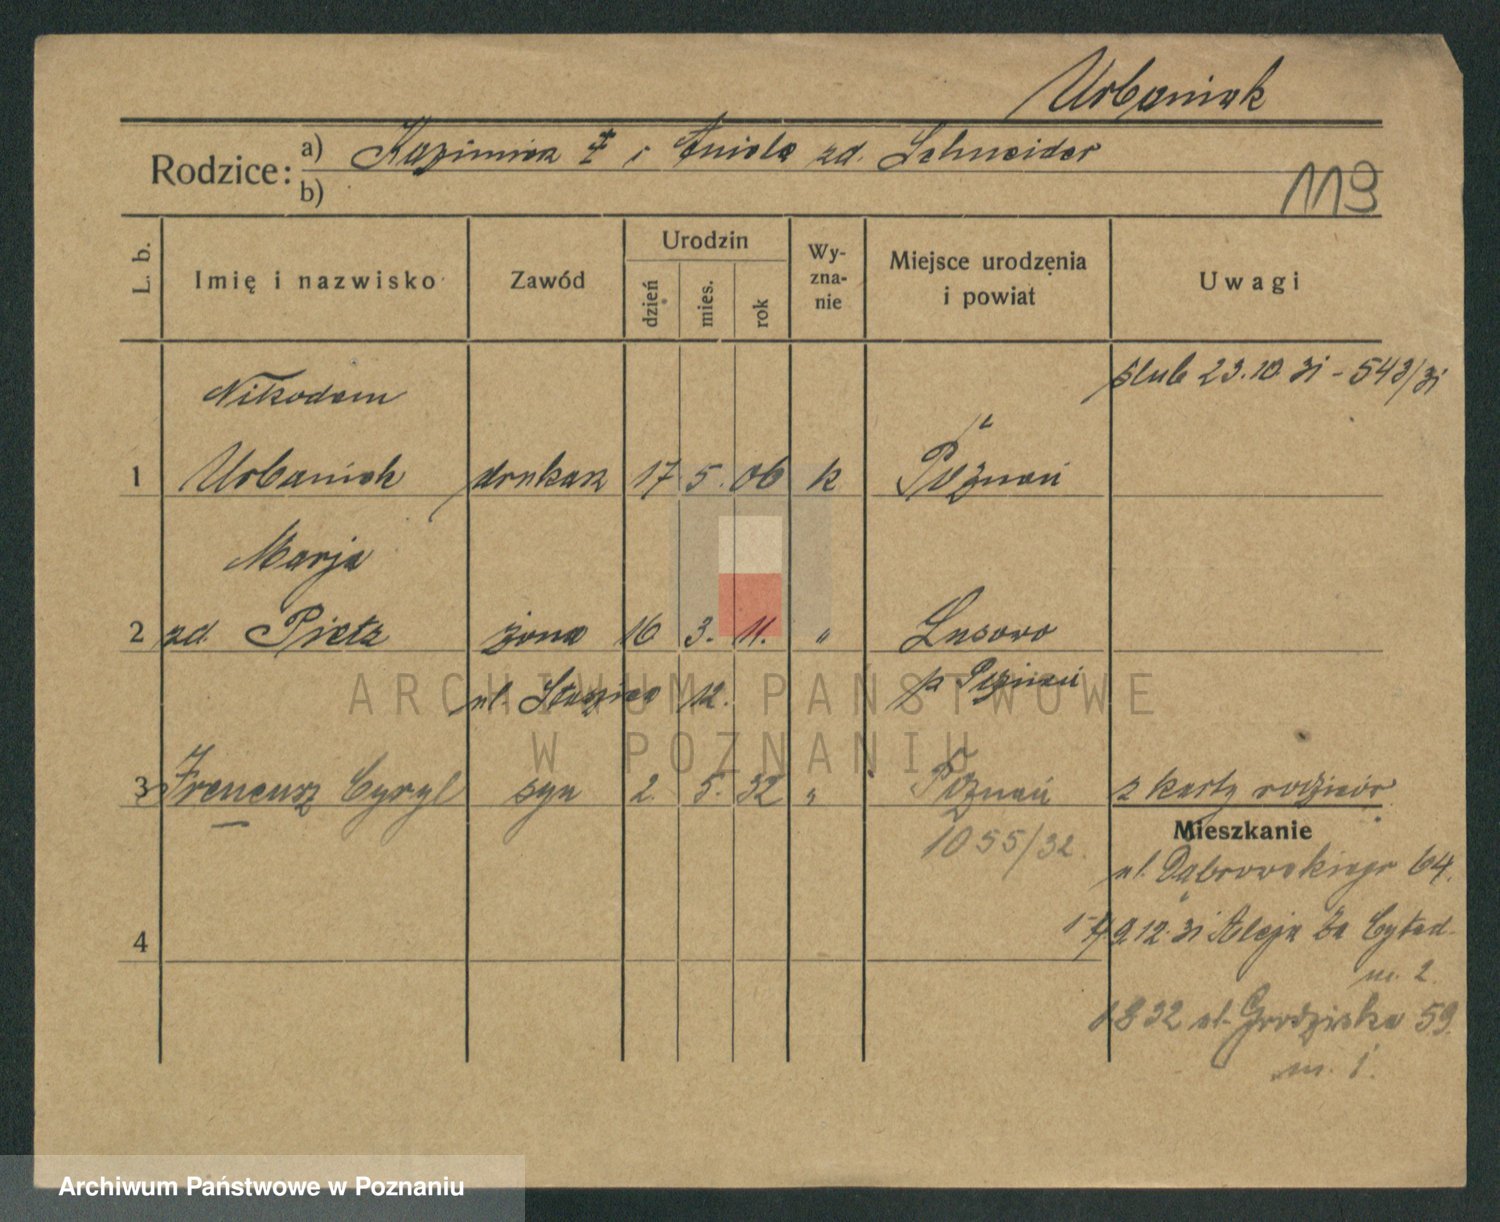 Urbaniak
Rodzice:
a) Kazimierz † i Aniela zd. Schneider
b)
119
L. b.
Imię i nazwisko
Zawód
Urodzin
dzień
mies.
rok
Wy-
zna-
nie
Miejsce urodzenia
i powiat
Uwagi
ślub 23.10.31 - 543/31
Nikodem
1 Urbaniak drukarz 17 5. 06 k Poznań
Marja
2 zd. Pietz żona 16 3. 11. " Lusowo
ul. Staszica 12. p. Poznań
3 Ireneusz Cyryl syn 2. 5. 32 " Poznań z karty rodziców
1055/32.
Mieszkanie
ul. Dąbrowskiego 64.
9.12.31 Aleja Za Cytad.
m. 2.
1.8 32 ul. Grodziska 59.
m. 1.
4
ARCHIWUM PAŃSTWOWE
W POZNANIU
Archiwum Państwowe w Poznaniu